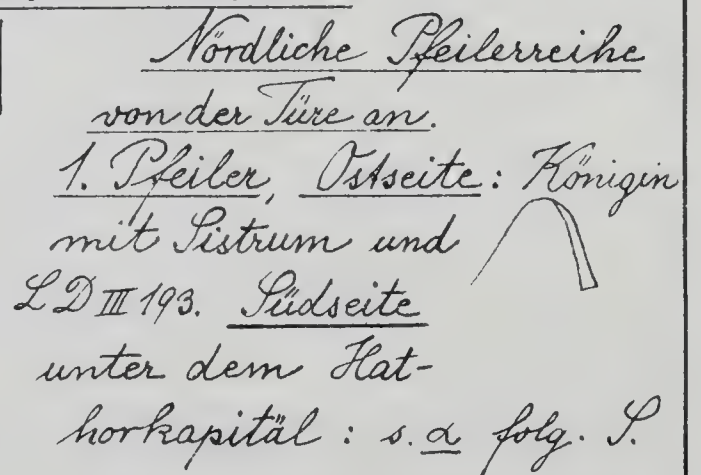 Nördliche Pfeilerreihe
von der Türe an.
1. Pfeiler, Ostseite: Königin
mit Sistrum und
LD III 193. Südseite
unter dem Hat-
horkapitäl : s. α folg. S.